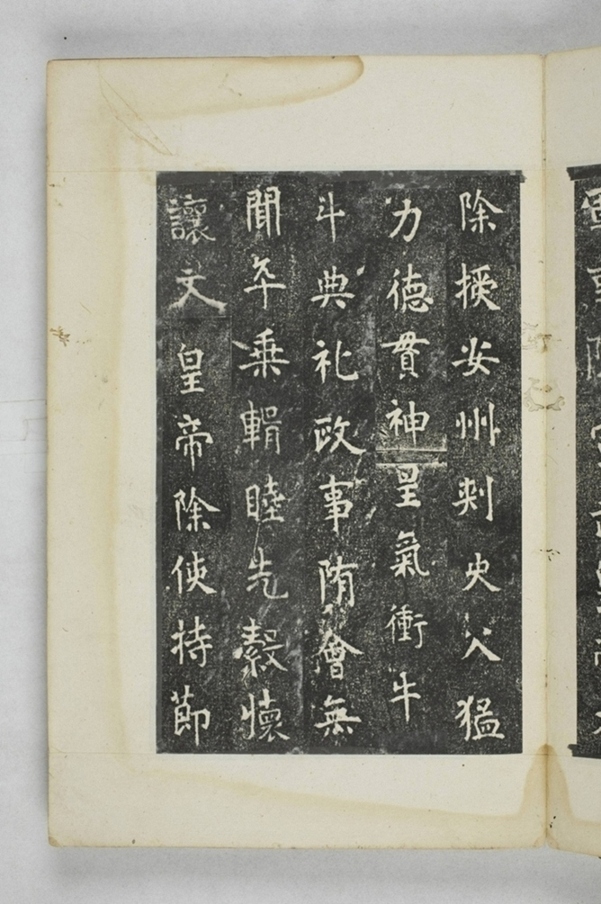 除授安州刾史父猛
力徳貫神皇氣衝牛
斗典礼政事隋會無
聞卒乗輯睦先縠懷
讓文皇帝除使持節